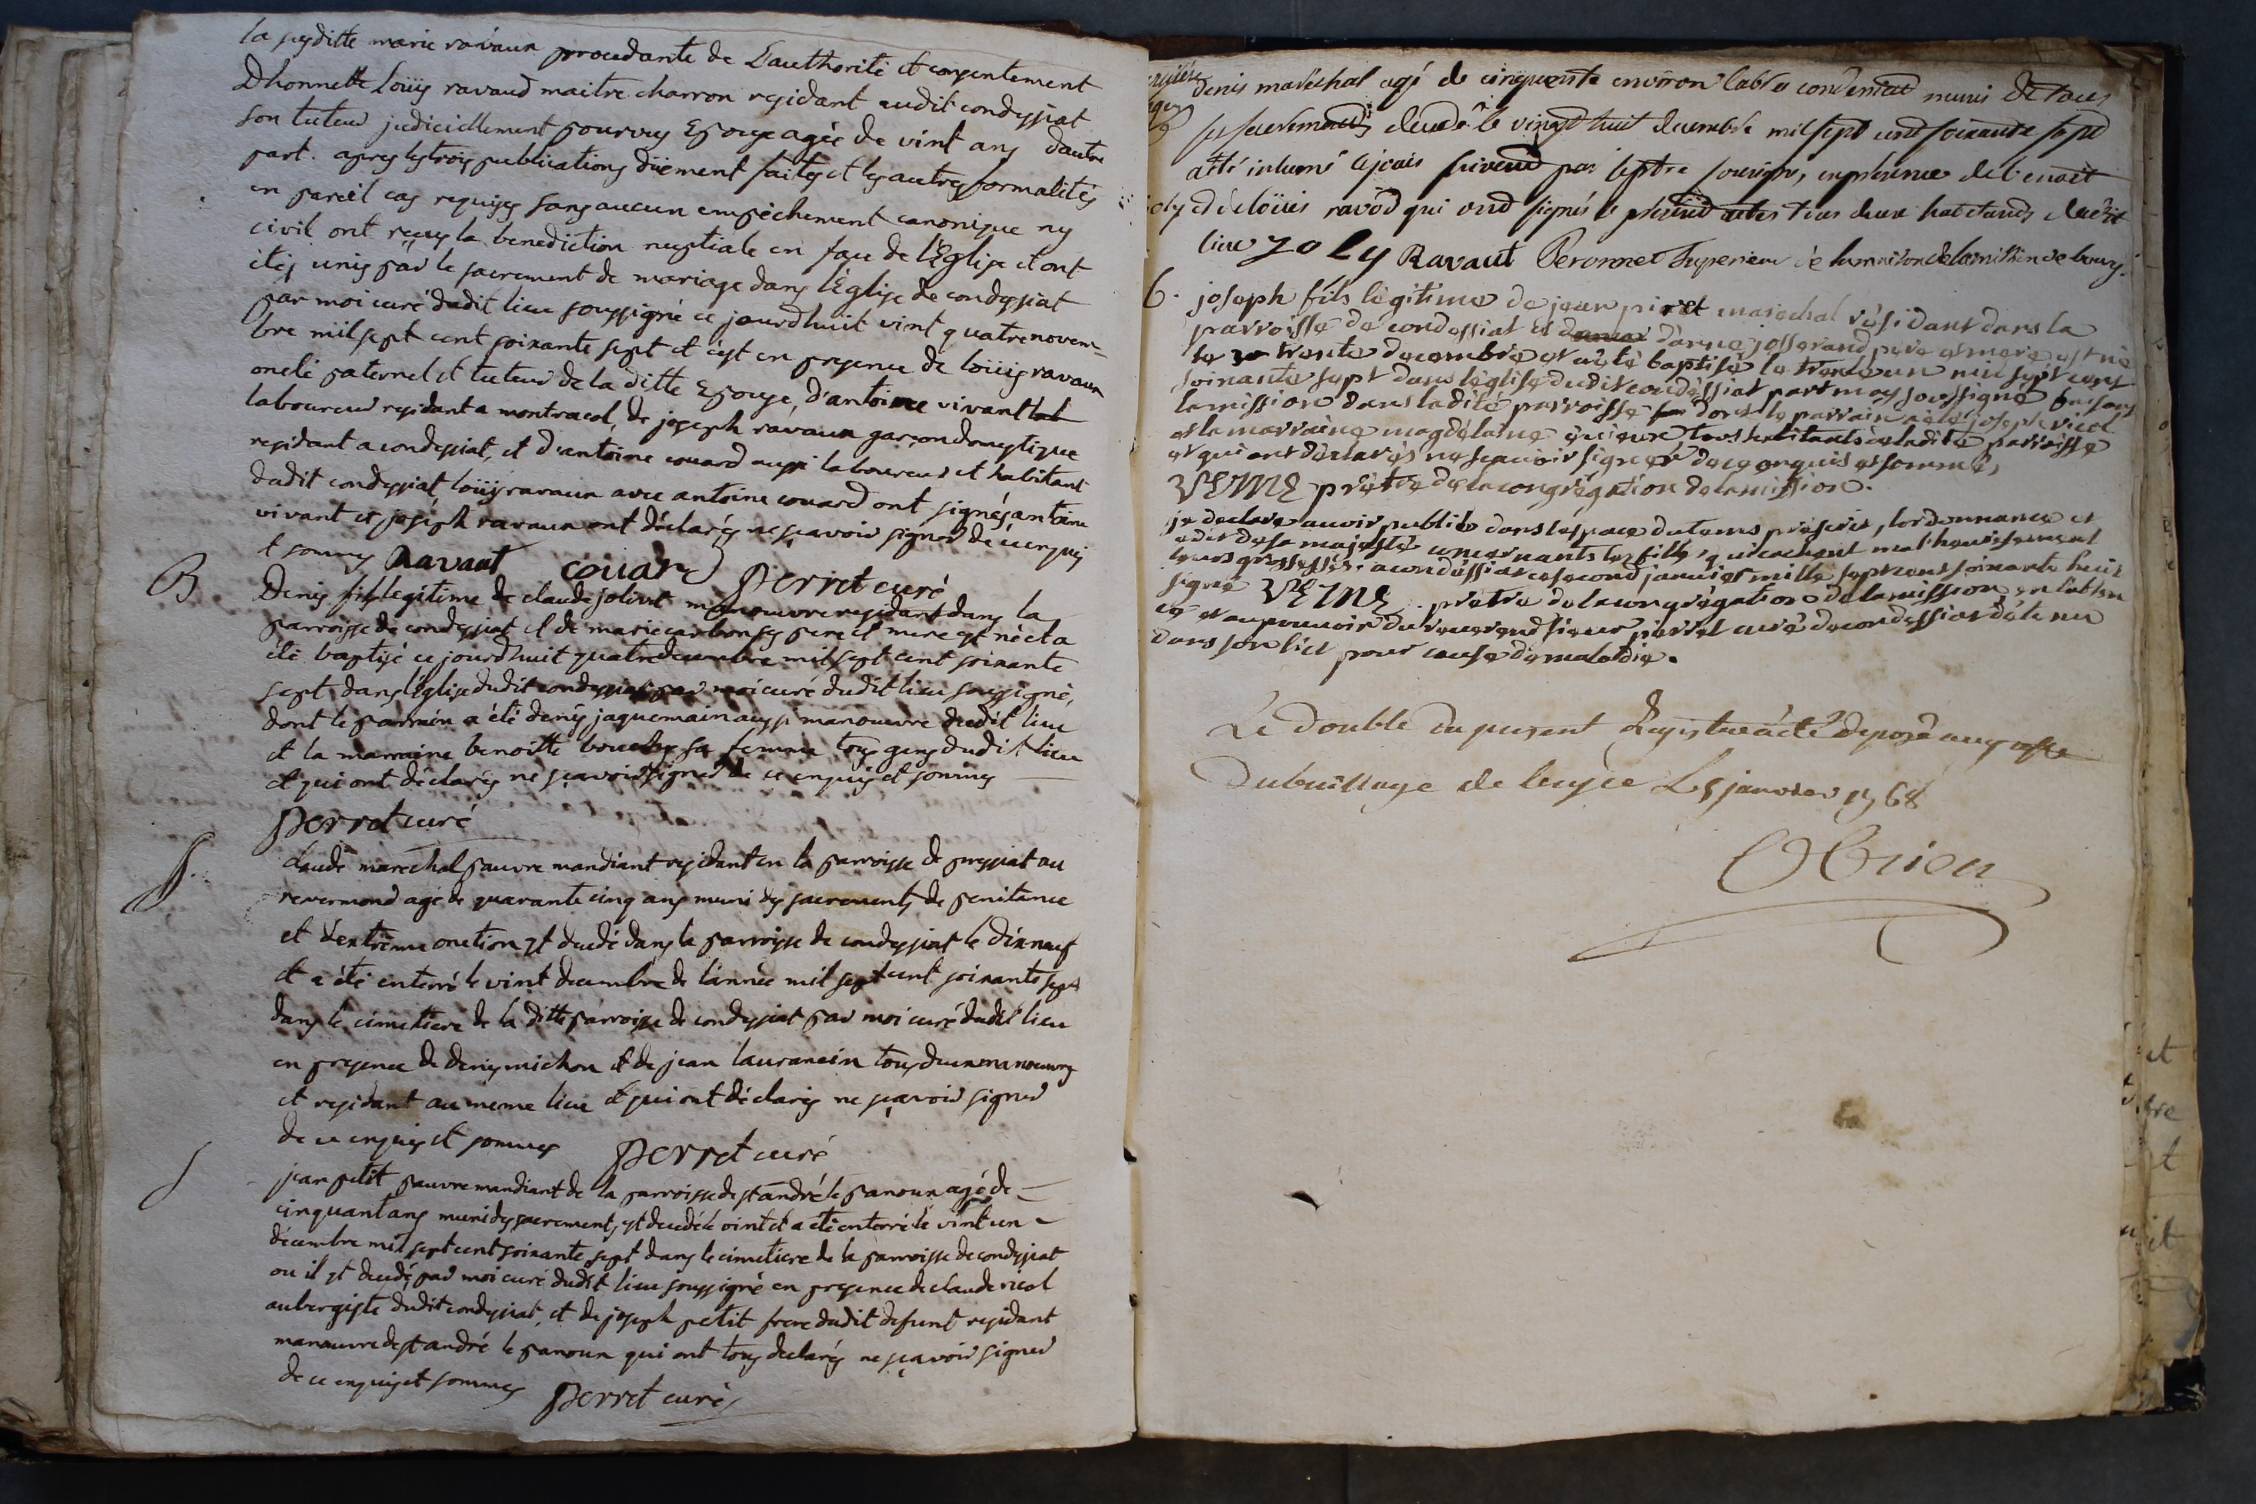 la susditte marie ravaux procedante de L'authorité et consentement
Dhonnette Loüis ravaud maitre charron residant audit condessiat
son tuteur judiciellement pourvus Epouse agée de vint ans dautre
part. apres les trois publications düement faites et les autres formalités
en pareil cas requises sans aucun empêchement canonique ny
civil ont reçus la benediction nuptiale en face de l'Eglise et ont
étés unis par le sacrement de mariage dans l'Eglise de condessiat
par moi curé dudit lieu soussigné ce jourdhuit vint quatre novem=
bre mil sept cent soixante sept et c'est en presence de loüis ravaux
oncle paternel et tuteur de la ditte Epouse, d'antoine vivant
laboureur residant a montracol, de joseph ravaux garçon domestique
residant a condessiat, et d'antoine couard aussi laboureur et habitant
dudit condessiat, loüis ravaux avec antoine couard ont signés antoine
vivant et joseph ravaux ont déclarés ne sçavoir signer de ce enquis
et sommes Ravaut couard Perret curé
B Denis fils legitime de claude jolivet manouvre residant dans la
parroisse de condessiat et de marie carbon ses pere et mere est né et a
été baptisé ce jourdhuit quatre decembre mil sept cent soixante
sept dans l'Eglise dudit condessiat par moi curé dudit lieu soussigné,
dont le parrain a été denis jaquemain aussi manouvre dudit lieu
et la marraine benoitte sa femme tous gens dudit lieu
et qui ont déclarés ne sçavoir signer de ce enquis et sommes
Perret curé
S. Laude marechal pauvre mandiant residant en la parroisse de pressiat au
revermond agé de quarante cinq ans muni des sacrements de penitance
et d'extrême onction est decedé dans la parroisse de condessiat le dixneuf
et a été enterré le vint decembre de l'année mil sept cent soixante sept
dans le cimetiere de la ditte parroisse de condessiat par moi curé dudit lieu
en presence de denis michon et de jean laurancin tous deux manouvres
et residant au meme lieu et qui ont déclarés ne sçavoir signer
de ce enquis et sommes Perret curé
S jean petit pauvre mandiant de la parroisse de st andré le panoux agé de
cinquant ans muni des sacrements est decedé le vint et a été enterré le vint un
décembre mil sept cent soixante sept dans le cimetiere de la parroisse de condessiat
ou il est decedé par moi curé dudit lieu soussigné en presence de claude nicol
aubergiste dudit condessiat, et de joseph petit frere dudit defunt residant
manouvre de st andré le panoux qui ont tous declarés ne sçavoir signer
de ce enquis et sommes Perret curé
denis maréchal agé de cinquente environ munis de tous
ses sacremends decedé le vingt huit decembre mil sept cend soixante sept
a été inhumé le jour suivend par le ptre soussigné, en presence de benoit
joly et de loüis ravôd qui ond signés le présend actes tous deux habetands dudit
lieu joly Ravaut Peronnet Superieur de la maison de la mission de bourg.
6. joseph fils lègitime de jean piret marechal résidant dans la
parroisse de condessiat et d'anne josserand pere et mere est né
le trente decembre et a eté baptisé le trente un mil sept cens
soixante sept dans l'église dudit condessiat par moy soussigné faisans
la mission dans ladite parroisse dont le parrain a été joseph nicol
et la marraine magdelaine tous habitants de ladite parroisse
et qui ont déclarés ne sçavoir signer de ce enquis et sommés,
prêtre de la congrégation de la mission.
je declare avoir publié dans lespace du tems préscrit, lordonnance et
edit de sa majesté concernants les filles qui cachent malheureusement
leurs grossesses. a condessiat ce second janvier mille sept cens soixante huit
signé prêtre de la congrégation de la mission, en l'absen
ce et au pouvoir du reverend sieur pérret curé de condessiat détenu
dans son lict pour cause de maladie.
Le double du present Registre a été déposé au greffe
du bailliage de bresse Le 5 janvier 1768